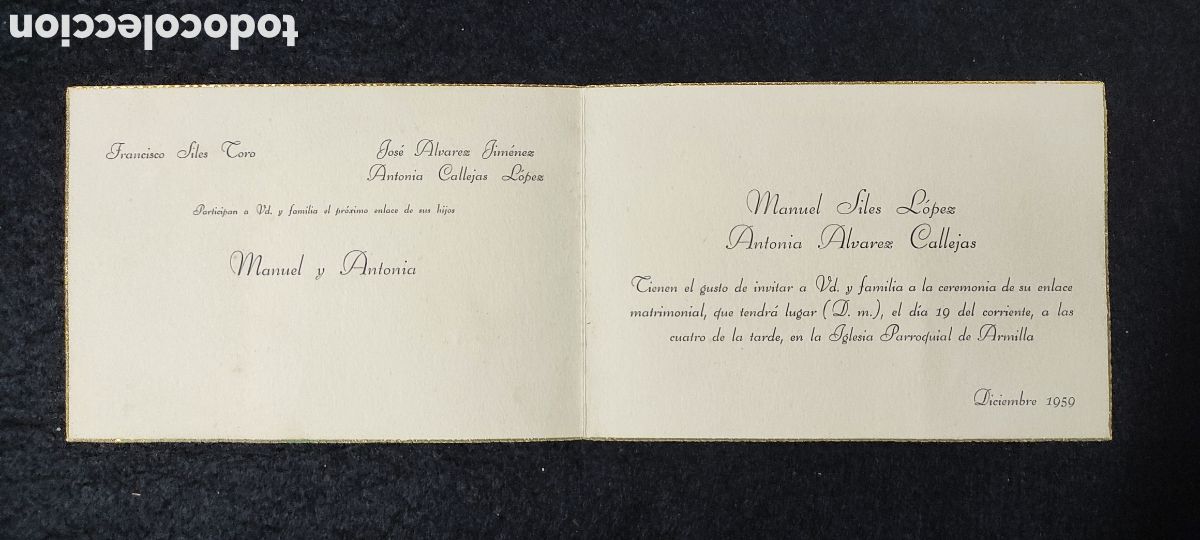 todocoleccion
Francisco Siles Toro
José Alvarez Jiménez
Antonia Callejas López
Participan a Vd. y familia el próximo enlace de sus hijos
Manuel y Antonia
Manuel Siles López
Antonia Alvarez Callejas
Tienen el gusto de invitar a Vd. y familia a la ceremonia de su enlace
matrimonial, que tendrá lugar (D. m.), el día 19 del corriente, a las
cuatro de la tarde, en la Iglesia Parroquial de Armilla
Diciembre 1959